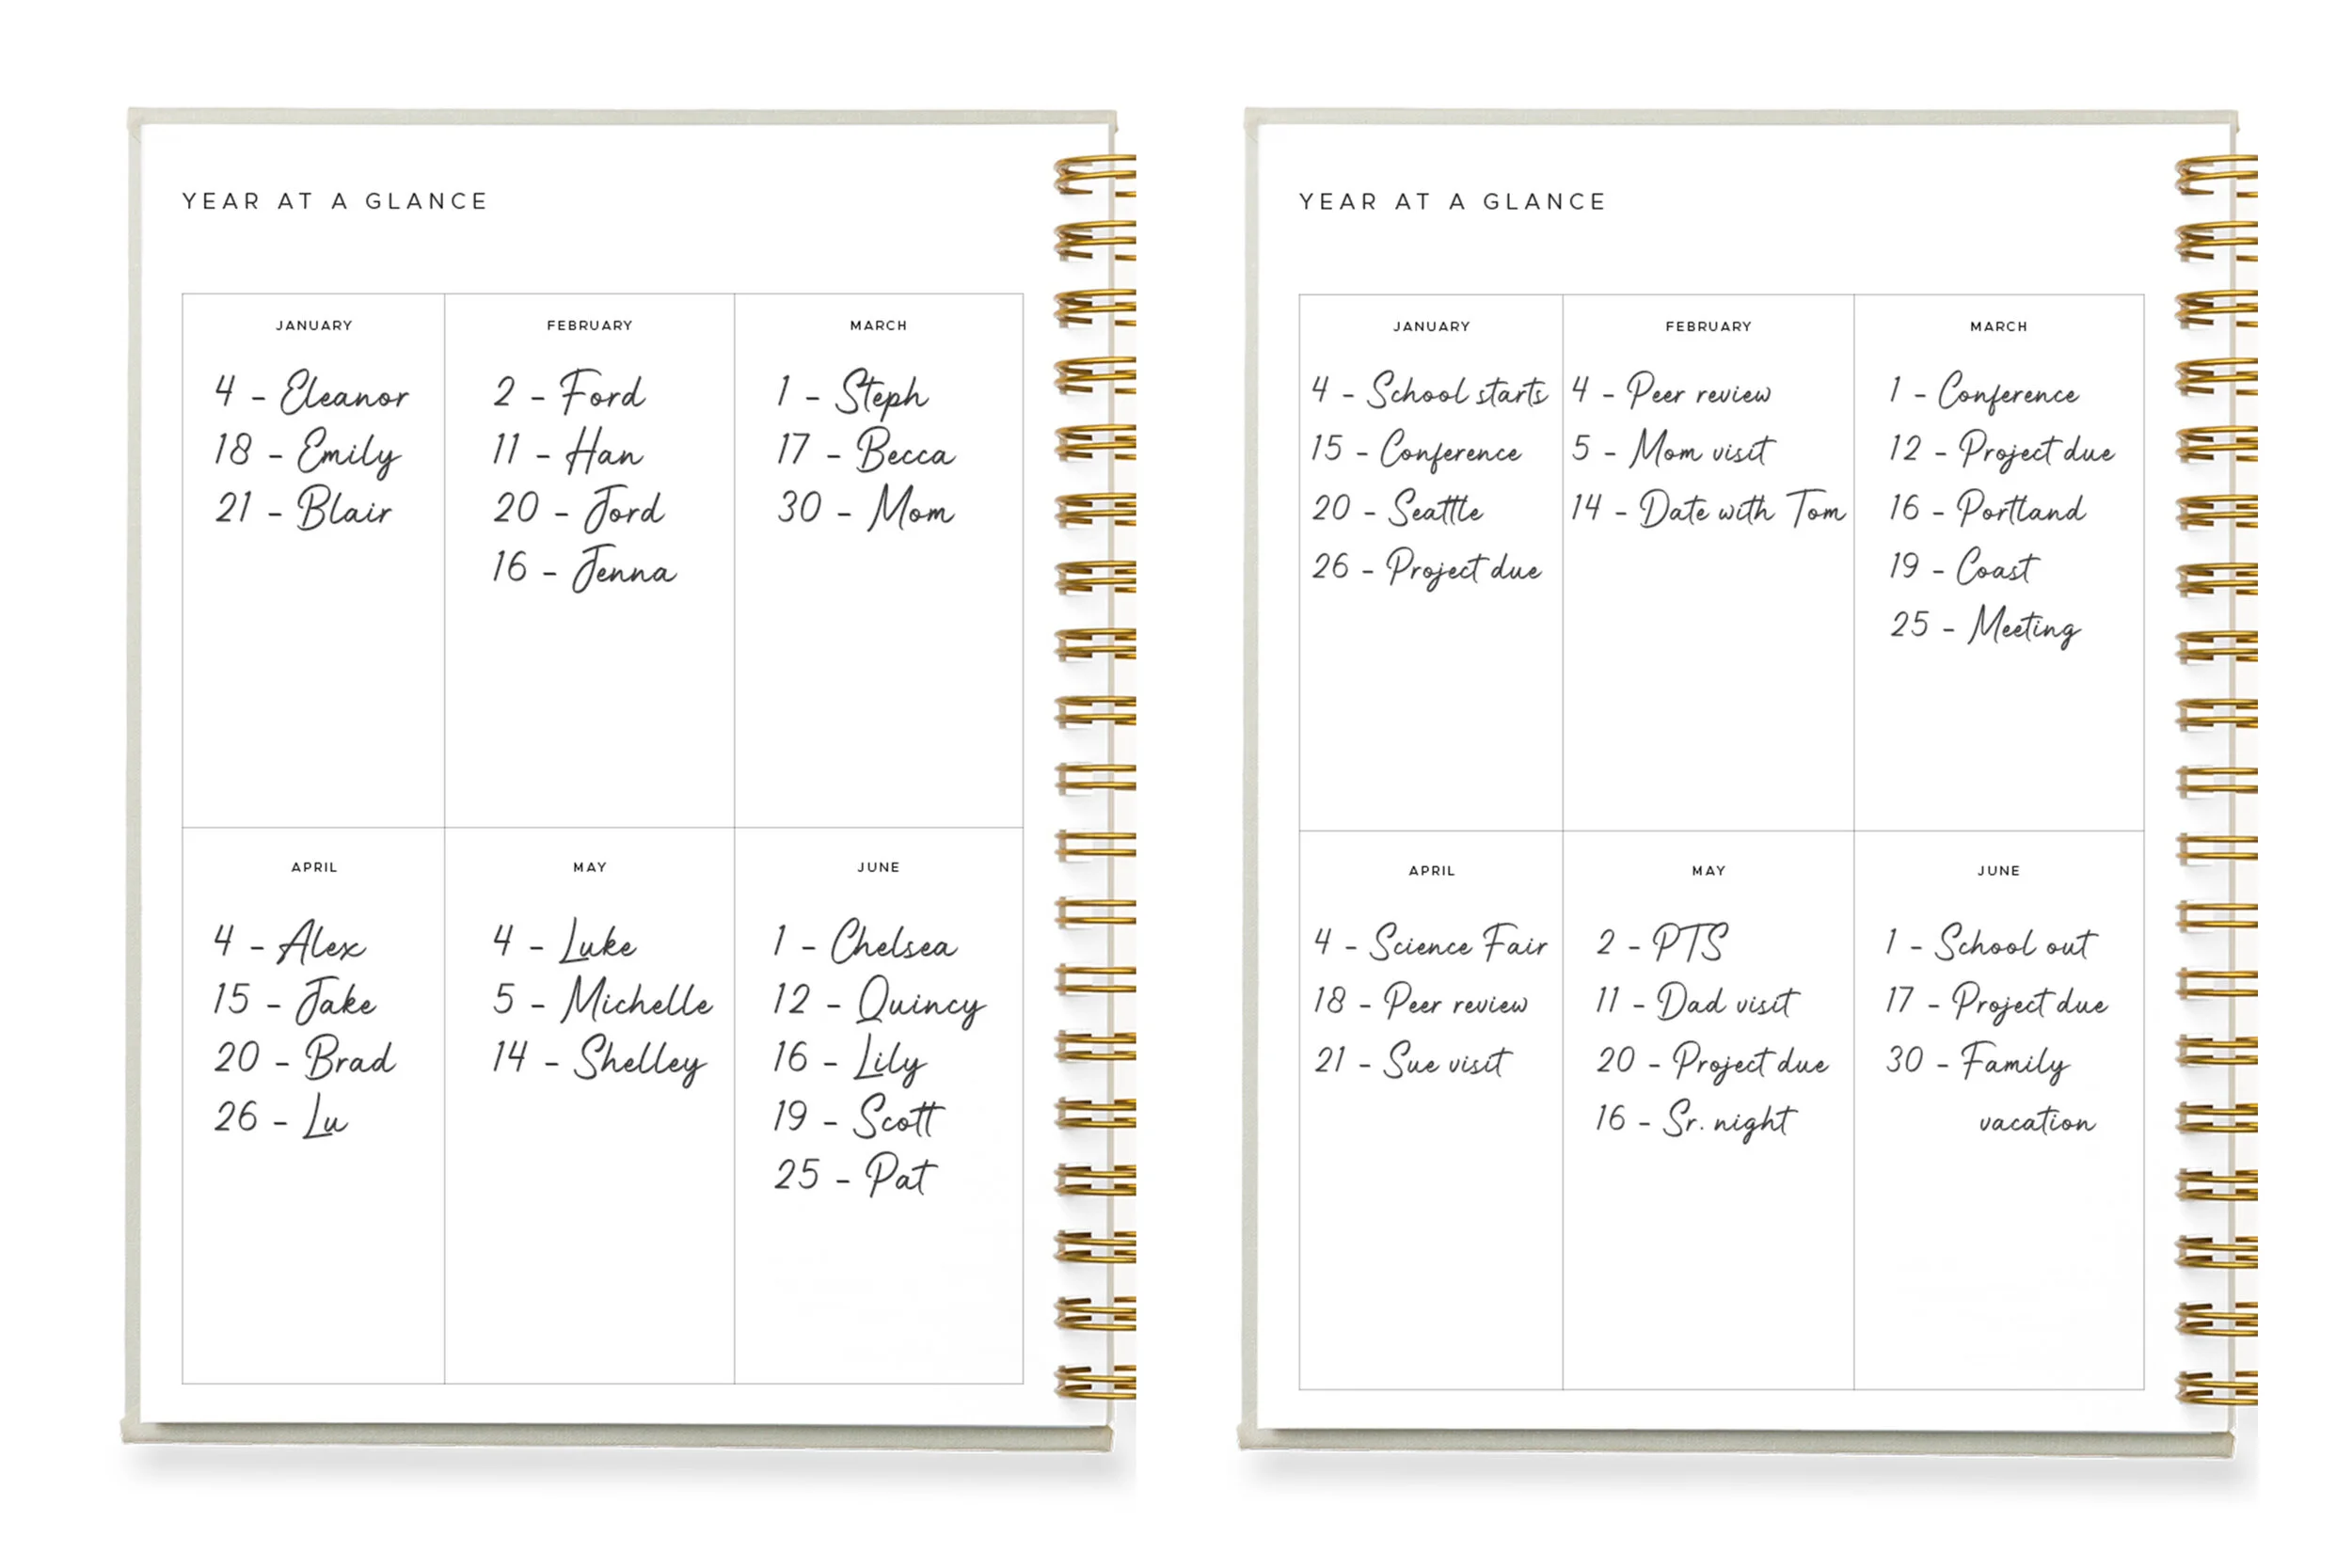 YEAR AT A GLANCE
JANUARY
4 - Eleanor
18 - Emily
21 - Blair
FEBRUARY
2 - Ford
11 - Han
20 - Jord
16 - Jenna
MARCH
1 - Steph
17 - Becca
30 - Mom
APRIL
4 - Alex
15 - Jake
20 - Brad
26 - Lu
MAY
4 - Luke
5 - Michelle
14 - Shelley
JUNE
1 - Chelsea
12 - Quincy
16 - Lily
19 - Scott
25 - Pat
YEAR AT A GLANCE
JANUARY
4 - School starts
15 - Conference
20 - Seattle
26 - Project due
FEBRUARY
4 - Peer review
5 - Mom visit
14 - Date with Tom
MARCH
1 - Conference
12 - Project due
16 - Portland
19 - Coast
25 - Meeting
APRIL
4 - Science Fair
18 - Peer review
21 - Sue visit
MAY
2 - PTS
11 - Dad visit
20 - Project due
16 - Sr. night
JUNE
1 - School out
17 - Project due
30 - Family
vacation